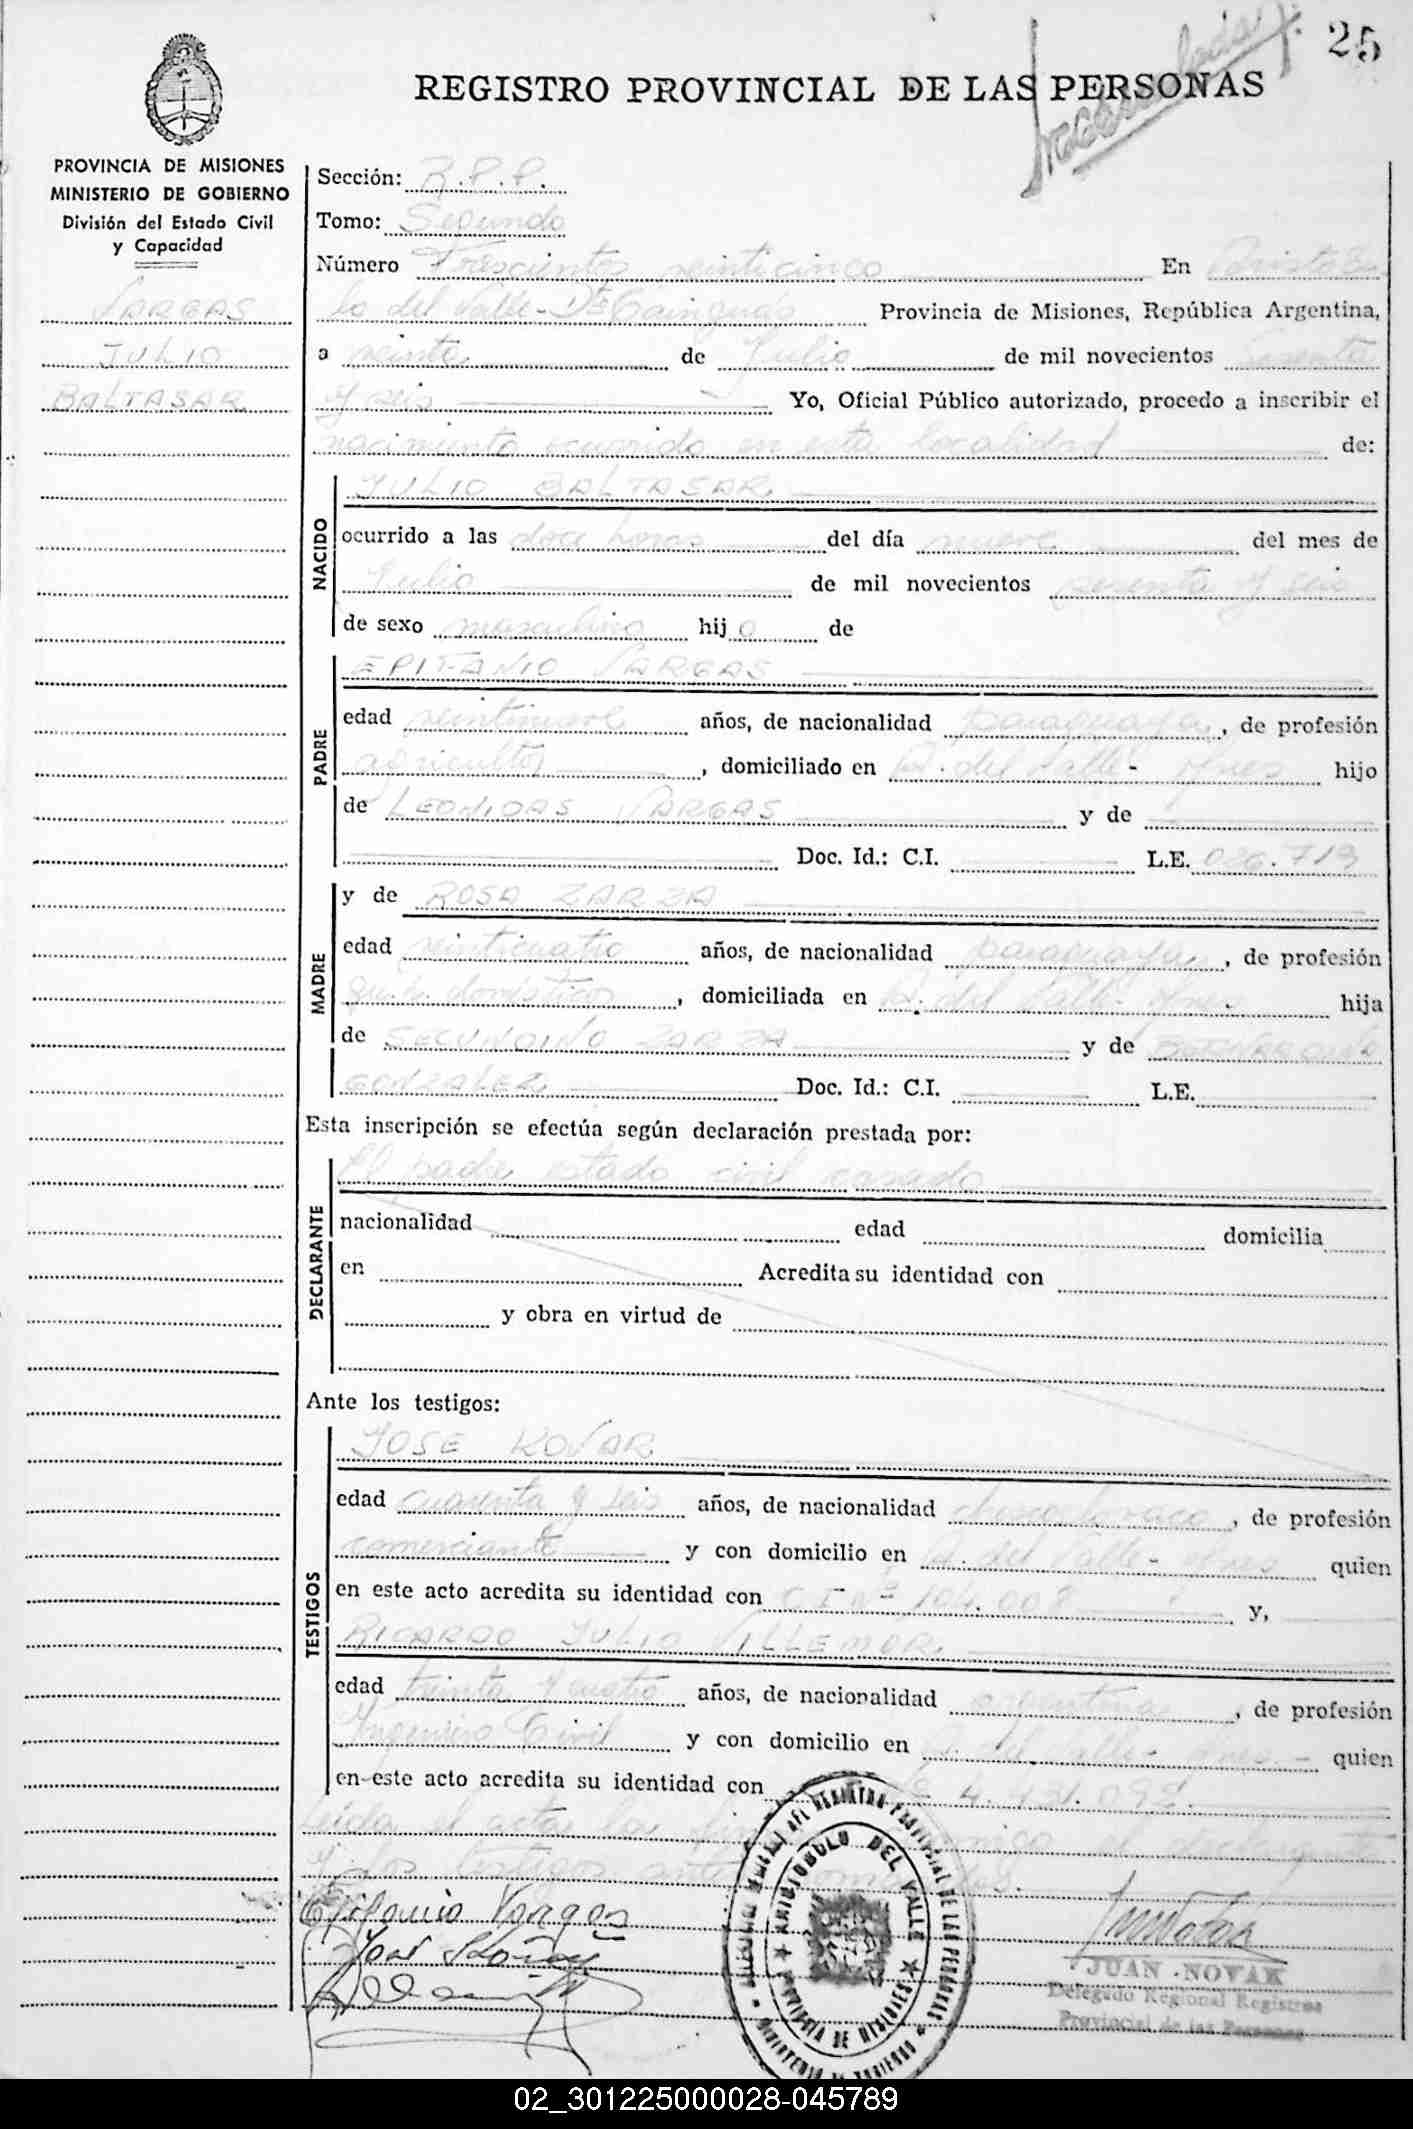 25
REGISTRO PROVINCIAL DE LAS PERSONAS
PROVINCIA DE MISIONES
MINISTERIO DE GOBIERNO
División del Estado Civil
y Capacidad
VARGAS
JULIO
BALTASAR
Sección: R.P.P.
Tomo: Segundo
Número Trescientos veinticinco En Aristobu
lo del Valle - Dto Cainguás Provincia de Misiones, República Argentina,
a veinte de Julio de mil novecientos sesenta
y seis Yo, Oficial Público autorizado, procedo a inscribir el
nacimiento ocurrido en esta localidad de:
NACIDO
JULIO BALTASAR
ocurrido a las doce horas del día nueve del mes de
Julio de mil novecientos sesenta y seis
de sexo masculino hijo de
PADRE
EPIFANIO VARGAS
edad veintinueve años, de nacionalidad paraguaya, de profesión
agricultor, domiciliado en A. del Valle - Mnes hijo
de LEONIDAS VARGAS y de
Doc. Id.: C.I. L.E. 026.719
MADRE
y de ROSA ZARZA
edad veinticuatro años, de nacionalidad paraguaya, de profesión
domésticos, domiciliada en A. del Valle - Mnes hija
de SECUNDINO ZARZA y de BERNARDINA
GONZALEZ Doc. Id.: C.I. L.E.
Esta inscripción se efectúa según declaración prestada por:
DECLARANTE
El padre estado civil casado
nacionalidad edad domicilia
en Acredita su identidad con
y obra en virtud de
Ante los testigos:
TESTIGOS
JOSE KOVAR
edad cuarenta y seis años, de nacionalidad checoslovaco, de profesión
comerciante y con domicilio en A. del Valle - Mnes quien
en este acto acredita su identidad con C I Nº 104.008 y,
RICARDO JULIO VILLEMOR
edad treinta y cuatro años, de nacionalidad argentina, de profesión
Ingeniero Civil y con domicilio en A. del Valle - Mnes - quien
en este acto acredita su identidad con 4.431.092
Leida el acta la conmigo el declarante
y los testigos ante
Epifanio Vargas
José Kovar
DEL REGISTRO PROVINCIAL DE LAS PERSONAS
ARISTOBULO DEL VALLE
PROVINCIA DE MISIONES
MINISTERIO DE GOBIERNO
JUAN NOVAK
Delegado Regional Registros
Provincial de las Personas
02_301225000028-045789